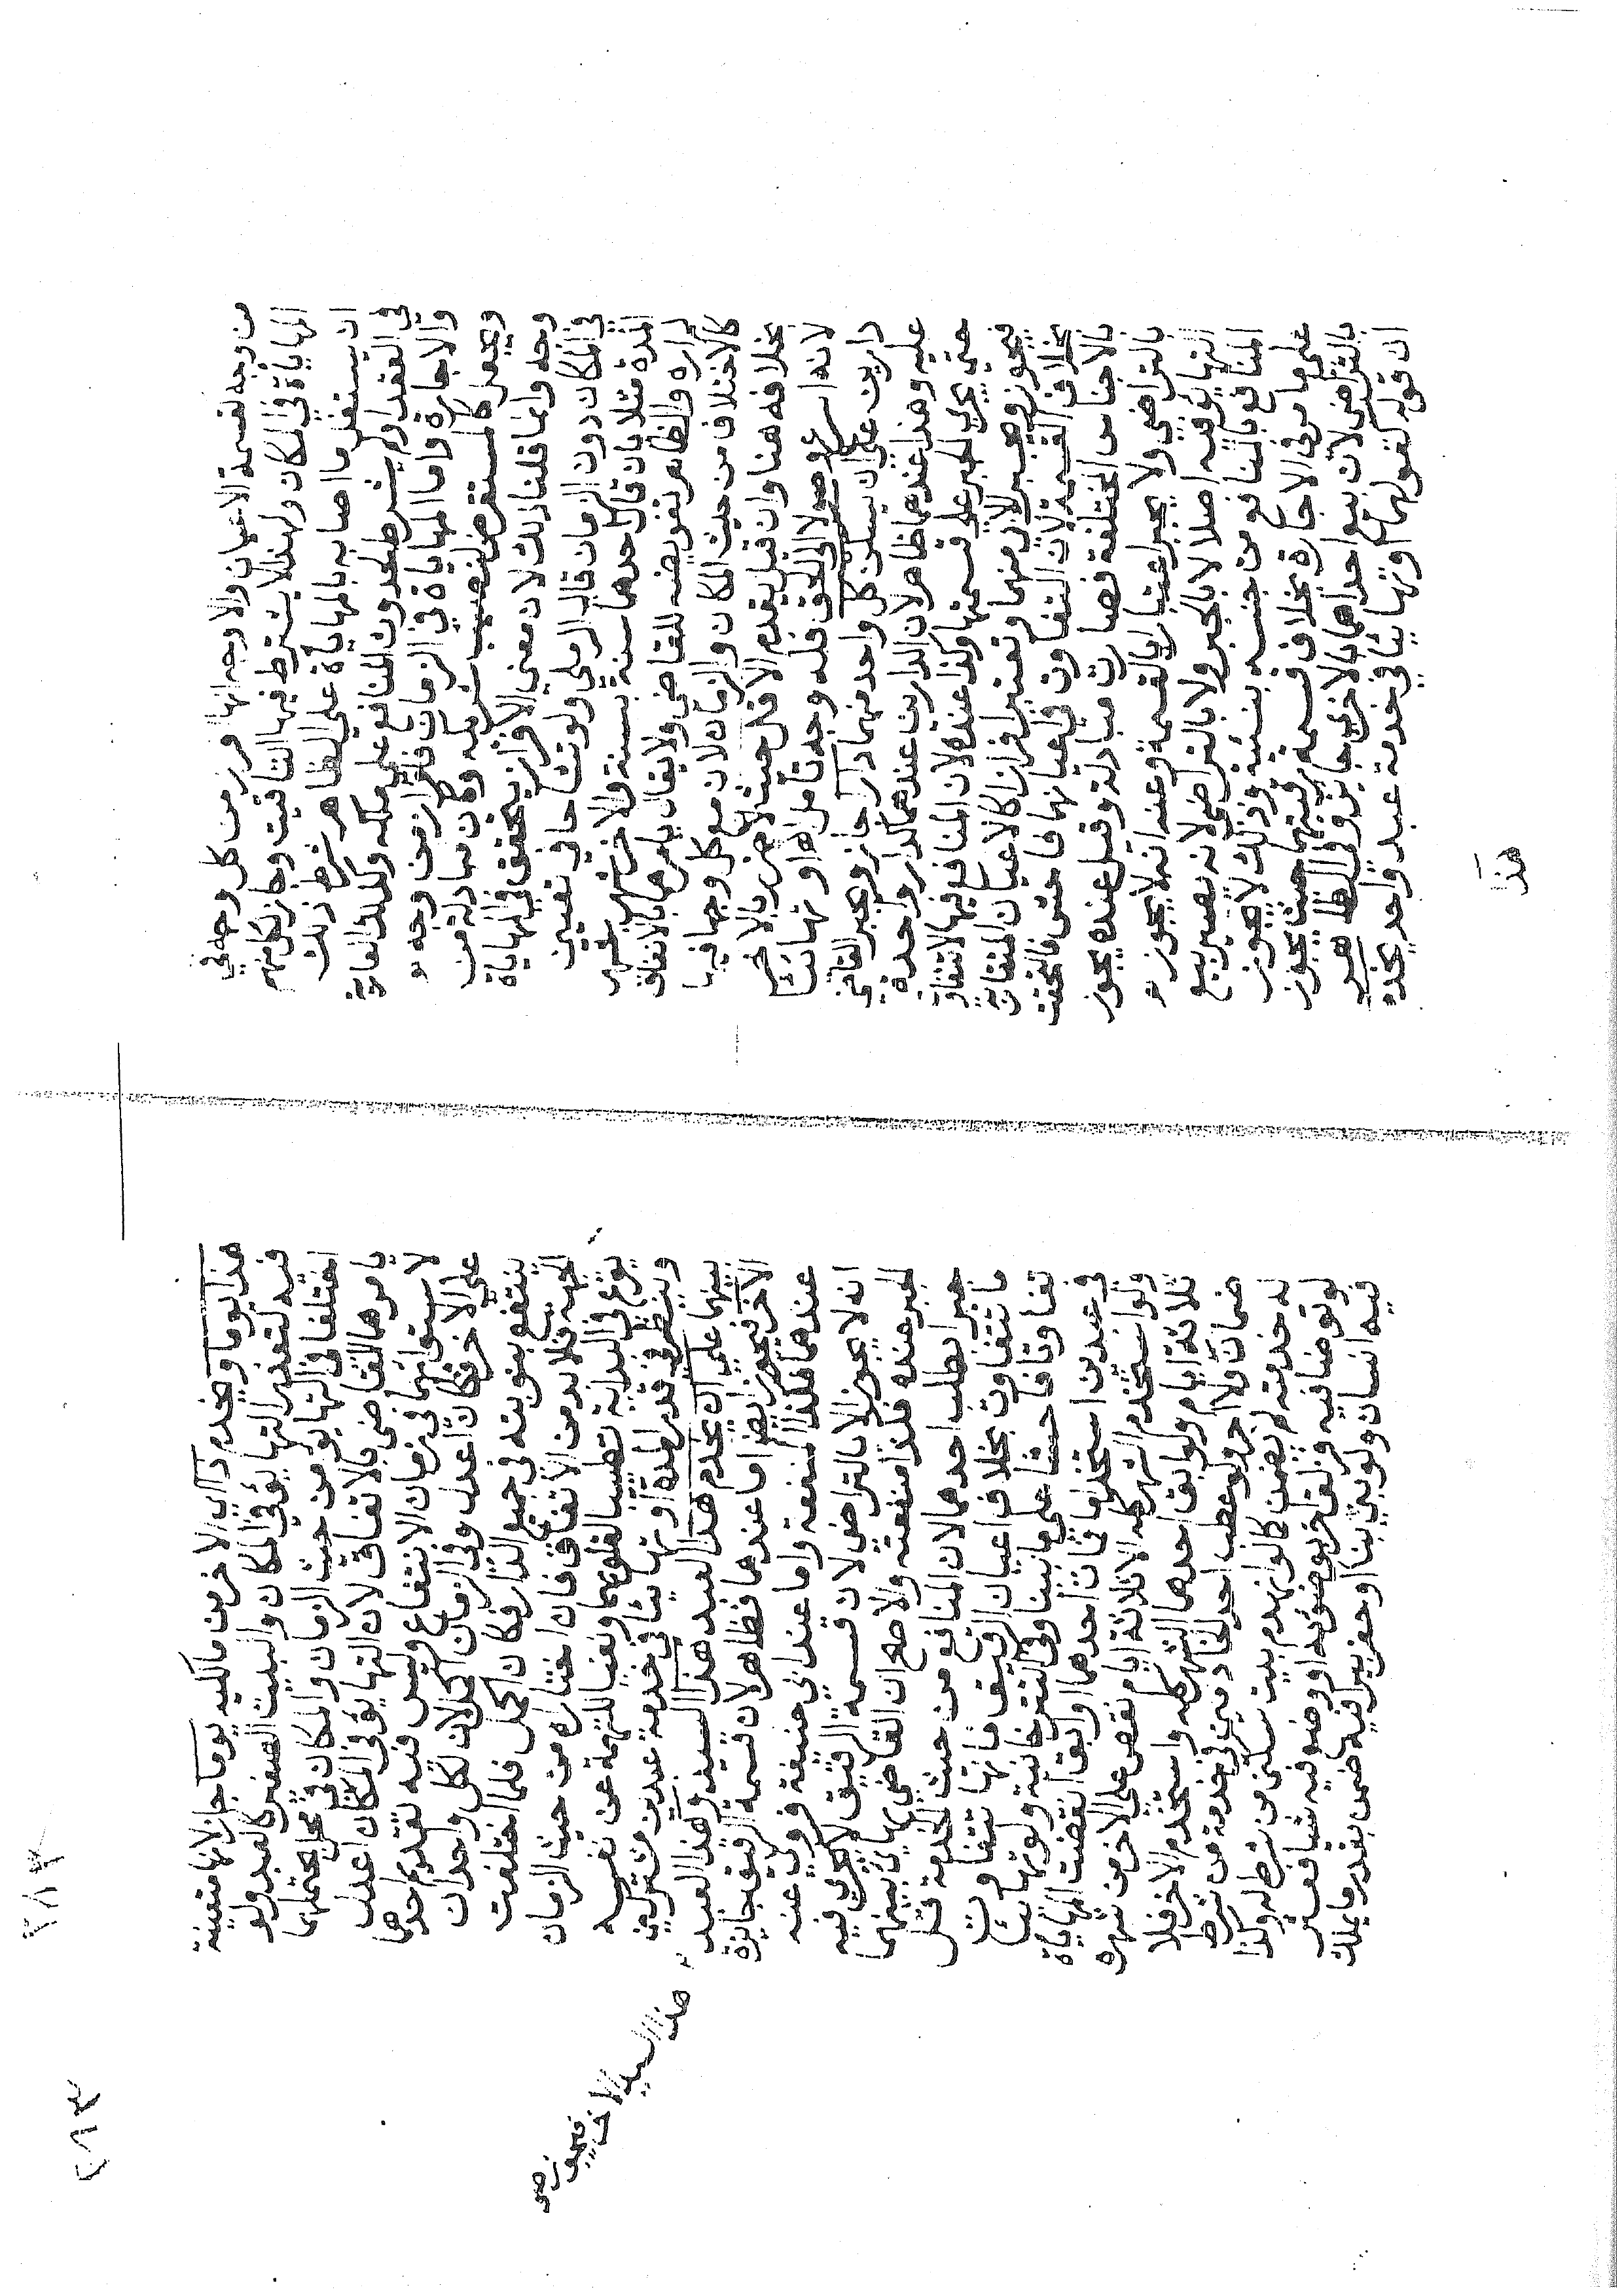 من وجه لقسمة الاعيان والاوجه انها فرز من كل وجه في
المهايأة في المكان ولهذا لا يشترط فيها التاقيت وجاز لكل منهم
ان يستغل ما اصابه بالمهايأة على الظاهر شرط ذلك
في العقد او لم يشرط لحدوث المنافع على ملكه وكذا العارية
والاجارة واما المهاياة في الزمان فافراز من وجه
ويجعل كالمستقرض لنصيب شريكه وكان مبادلة من
وجه وانما قلنا ذلك لان معنى الافراز يتحقق في المهاياة
في المكان دون الزمان قال الرملي ولو تشاحا في تعيين
المدة مثلا بان قال احدهما سنة بسنة والاخر شهر بشهر
لم اره والظاهر تفويضه للقاضي ولا يقال يامرهما بالاتفاق
كالاختلاف من حيث المكان والزمان لان مع كل وجها فيها
بخلافه هنا وان قيل يقدم الاقل حيث لا ضرر بالاخر
لانه اسرع وصولا الى الحق فله وجه تأمل اه او تهائئا
دارين على ان يسكن كل واحد منهما دارا جاز ويجبر القاضي
عليه وهذا عندهما ظاهر لان الدارين عندهما كدار واحدة
حتى يجري الجبر على قسمتها وكذا عنده لان المنافع فيها لا تتفاوت
فيجوز ويجبر الابي منهما وتعتبر افرازا كالاعيان المتقاربة
بخلاف القسمة لان التفاوت في اعيانهما فاحش فالتحقت
بالاجناس المختلفة فصارت مبادلة وقيل عنده يجوز
بالتراضي ولا يجبر اعتبارا بالقسمة وعنه انه لا يجوز
التهايؤ فيه اصلا لا بالجبر ولا بالتراضي لانه يصير بيع
المنافع بالمنافع من جنسه بنسئية وذلك لا يجوز
على ما مر في الاجارة بخلاف قسمة رقبتهما حيث يجوز
بالتراضي لان بيع احداهما بالاخرى جائز وفي الظاهر
ان قوله كقولهما او تهايئا في خدمة عبد واحد يخدم
هذا
هذا يوما ويخدم ذا اي الاخر من مالكيه يوما جاز لانها متعينة
فيه لتعذر التهايؤ في المكان والبيت الصغير كالعبد ولو
اختلفا في التهايؤ من حيث الزمان والمكان في محل يحتملهما
يامرهما القاضي بالاتفاق لان التهايؤ في المكان اعدل
لاستوائهما في زمان الانتفاع وليس فيه تقديم احدهما
على الاخر فكان اعدل وفي الزمان اكمل لان لكل واحد ان
ينتفع بنوبته في جميع الدار فكان اكمل فلما اختلفت
الجهة فلا بد من الاتفاق فان اختاراه من حيث الزمان
يقرع في البداية تطييبا لقلوبهما ونفيا للتهمة عن نفسه
وينظر في قدر المدة او تهايئا في خدمة عبدين مشتركين
بينهما على ان يخدم هذا العبد هذا السيد وهذا العبد
هذا السيد الاخر فيجوز صح
الاخر فيجوز ايضا اما عندهما فظاهر لان قسمة الرقيق جايزة
عندهما فكذا المنفعة واما عند ابي حنيفة فروي عنه
انه لا يجوز الا بالتراضي لان قسمة الرقيق لا يجري فيه
الجبر عنده فكذا منفعته والاصح ان القاضي يهايئ بينهما
جبرا بطلب احدهما لان المنافع من حيث الخدمة قل
ما تتفاوت بخلاف اعيان الرقيق فانها تتفاوت
تفاوتا فاحشا على ما بينا وفي التترخانية ولو تهايئا
في عبدين استخداما فمات احدهما او ابق انتقضت المهاياة
ولو استخدم الشهر كله الا ثلاثة ايام نقص على الاخر من شهره
ثلاثة ايام ولو ابق احدهما الشهر كله واستخدم الاخر فلا
ضمان ولا اجر ولو عطب احد الخادمين في خدمة من شرط
له خدمته لم يضمن كما لو انهدم بيت سكنى من شرط له وكذا
لو توضا فيه فزلق اخر بوضوئه او وضع فيه شيا فعثر
فيه انسان ولو بنى بنا او حفر بير فيه ضمن بقدر ما يملك
٢٨٣
٢٩٣